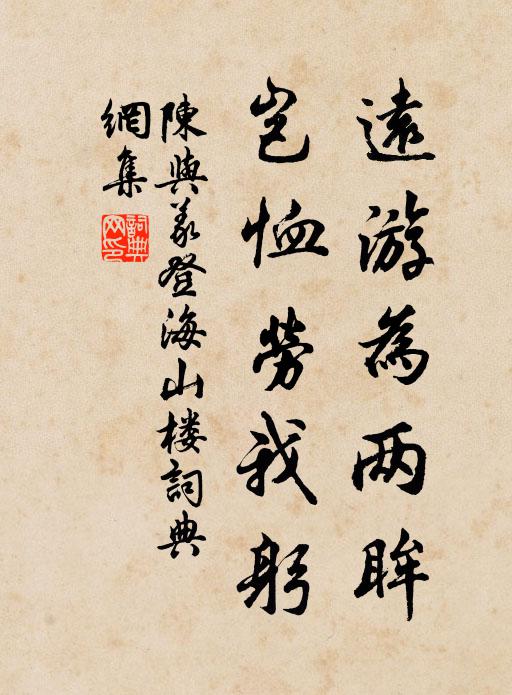 遠游為两眸
岂恤勞我躬
陳與義登海山楼詞典
網集
詞典
网印